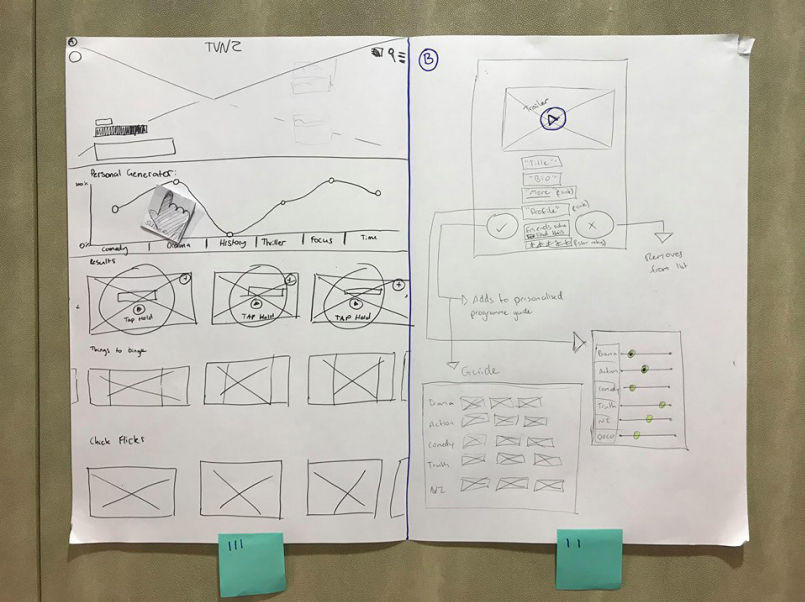 A
TVNZ
Personal Generator:
100%
0%
Comedy
Drama
History
Thriller
Focus
Time
Results
+
+
+
Tap Hold
TAP Hold
TAP Hold
Things to Binge
Chick Flicks
III
B
Trailer
"Title"
"BIO"
"More
"Profile"
✓
X
Removes
from list
Adds to personalised
programme guide
Guide
Drama
Action
Comedy
Truth
NZ
Drama
Action
Comedy
Truth
NZ
DOCO
II